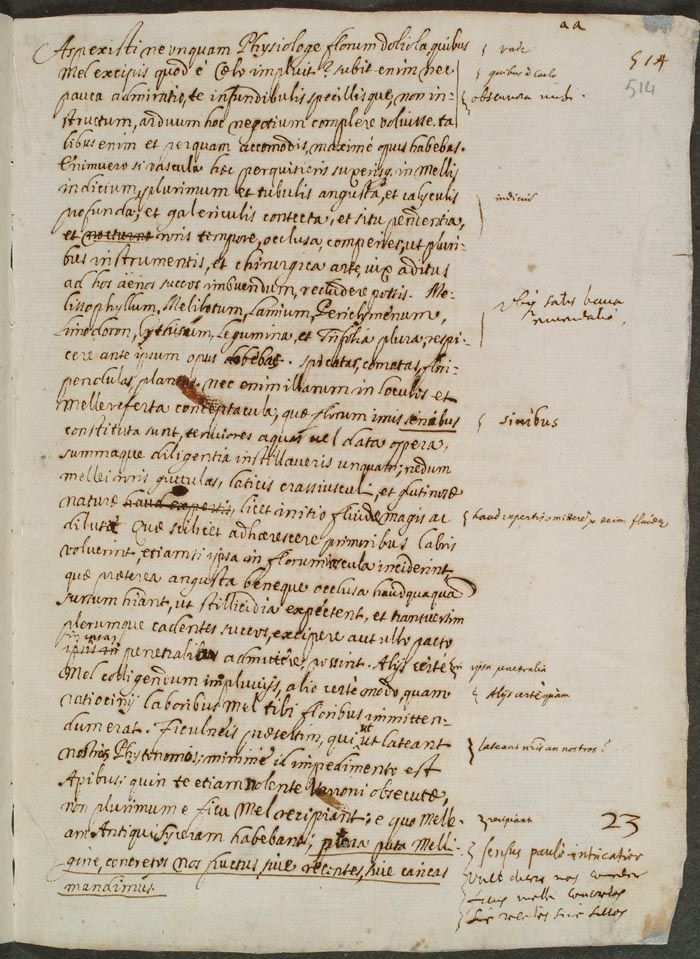 aa
514
514
Aspexisti ne vnquam Physiologe florum doliola, quibus
Mel excipis quod è Cœlo impluit? subit enim hec
pauca admiratio, te infundibulis specillisque, non in-
structum, arduum hoc negotium complere voluisse. ta
libus enim et perquam accomodis, maximè opus habebas.
Enimuero si vascula hec perquisieris superisq. in Mellis
indicium, plurimum et tubulis angusta, et calyculis
profunda; et galericulis contecta, et situ pendentia,
et nocturni roris tempore, occlusa, comperies, ut pluri-
bus instrumentis, et chirurgica arte, vix aditus
ad hos aërios succos imbuendum, recludere possis. Me-
lissophyllum, Melilotum, Lamium, Periclymenum,
Limodoron, Cythisum, Legumina, et Trifolia plura, respi-
cere ante ipsum opus debebas. spicatas, comatas,
pendulas, plantas. nec enim illarum in loculis et
melle referta conceptacula, quæ florum imis senibus
constituta sunt, tenuiores aquas vel data opera,
summaque diligentia instillaueris unquam; nedum
mellei roris guttulas, laticis crassiusculi, et glutinosæ
naturæ haud expertis, licet initio fluidæ magis ac
dilutæ Quæ scilicet adhærescere primoribus labris
voluerint, etiamsi ipsa in florum inciderint,
quæ præterea angusta beneque occlusa haudquaquam
sursum hiant, ut stillicidia expectent, et
plerumque cadentes succos, excipere aut ullo pacto
penetralibus admittere possint. Alijs certè
Mel colligendum impluvijs, alio certè modo, quam
ratiocinij laboribus Mel tibi floribus inmitten-
dum erat. Ficulneis præsertim, qui ut lateant
nostros Phytonomos; minimè id impedimento est
Apibus; quin te etiam nolente Varroni obsecutæ,
non plurimum e ficu Mel recipiant; e quo Melle
am Antiqui Syceram habebant; plena puta Melli-
gine, concretos nos fructus siue recentes, siue caricas
mandimus.
vnde
quibus è caelo
obscura
indicijs
sinibus
haud expertis omittere
ipsa penetralia
Alijs certè quam
lateant nris an nostros?
recipiant
23
sensus paulò intricatior
nos
melle concretos